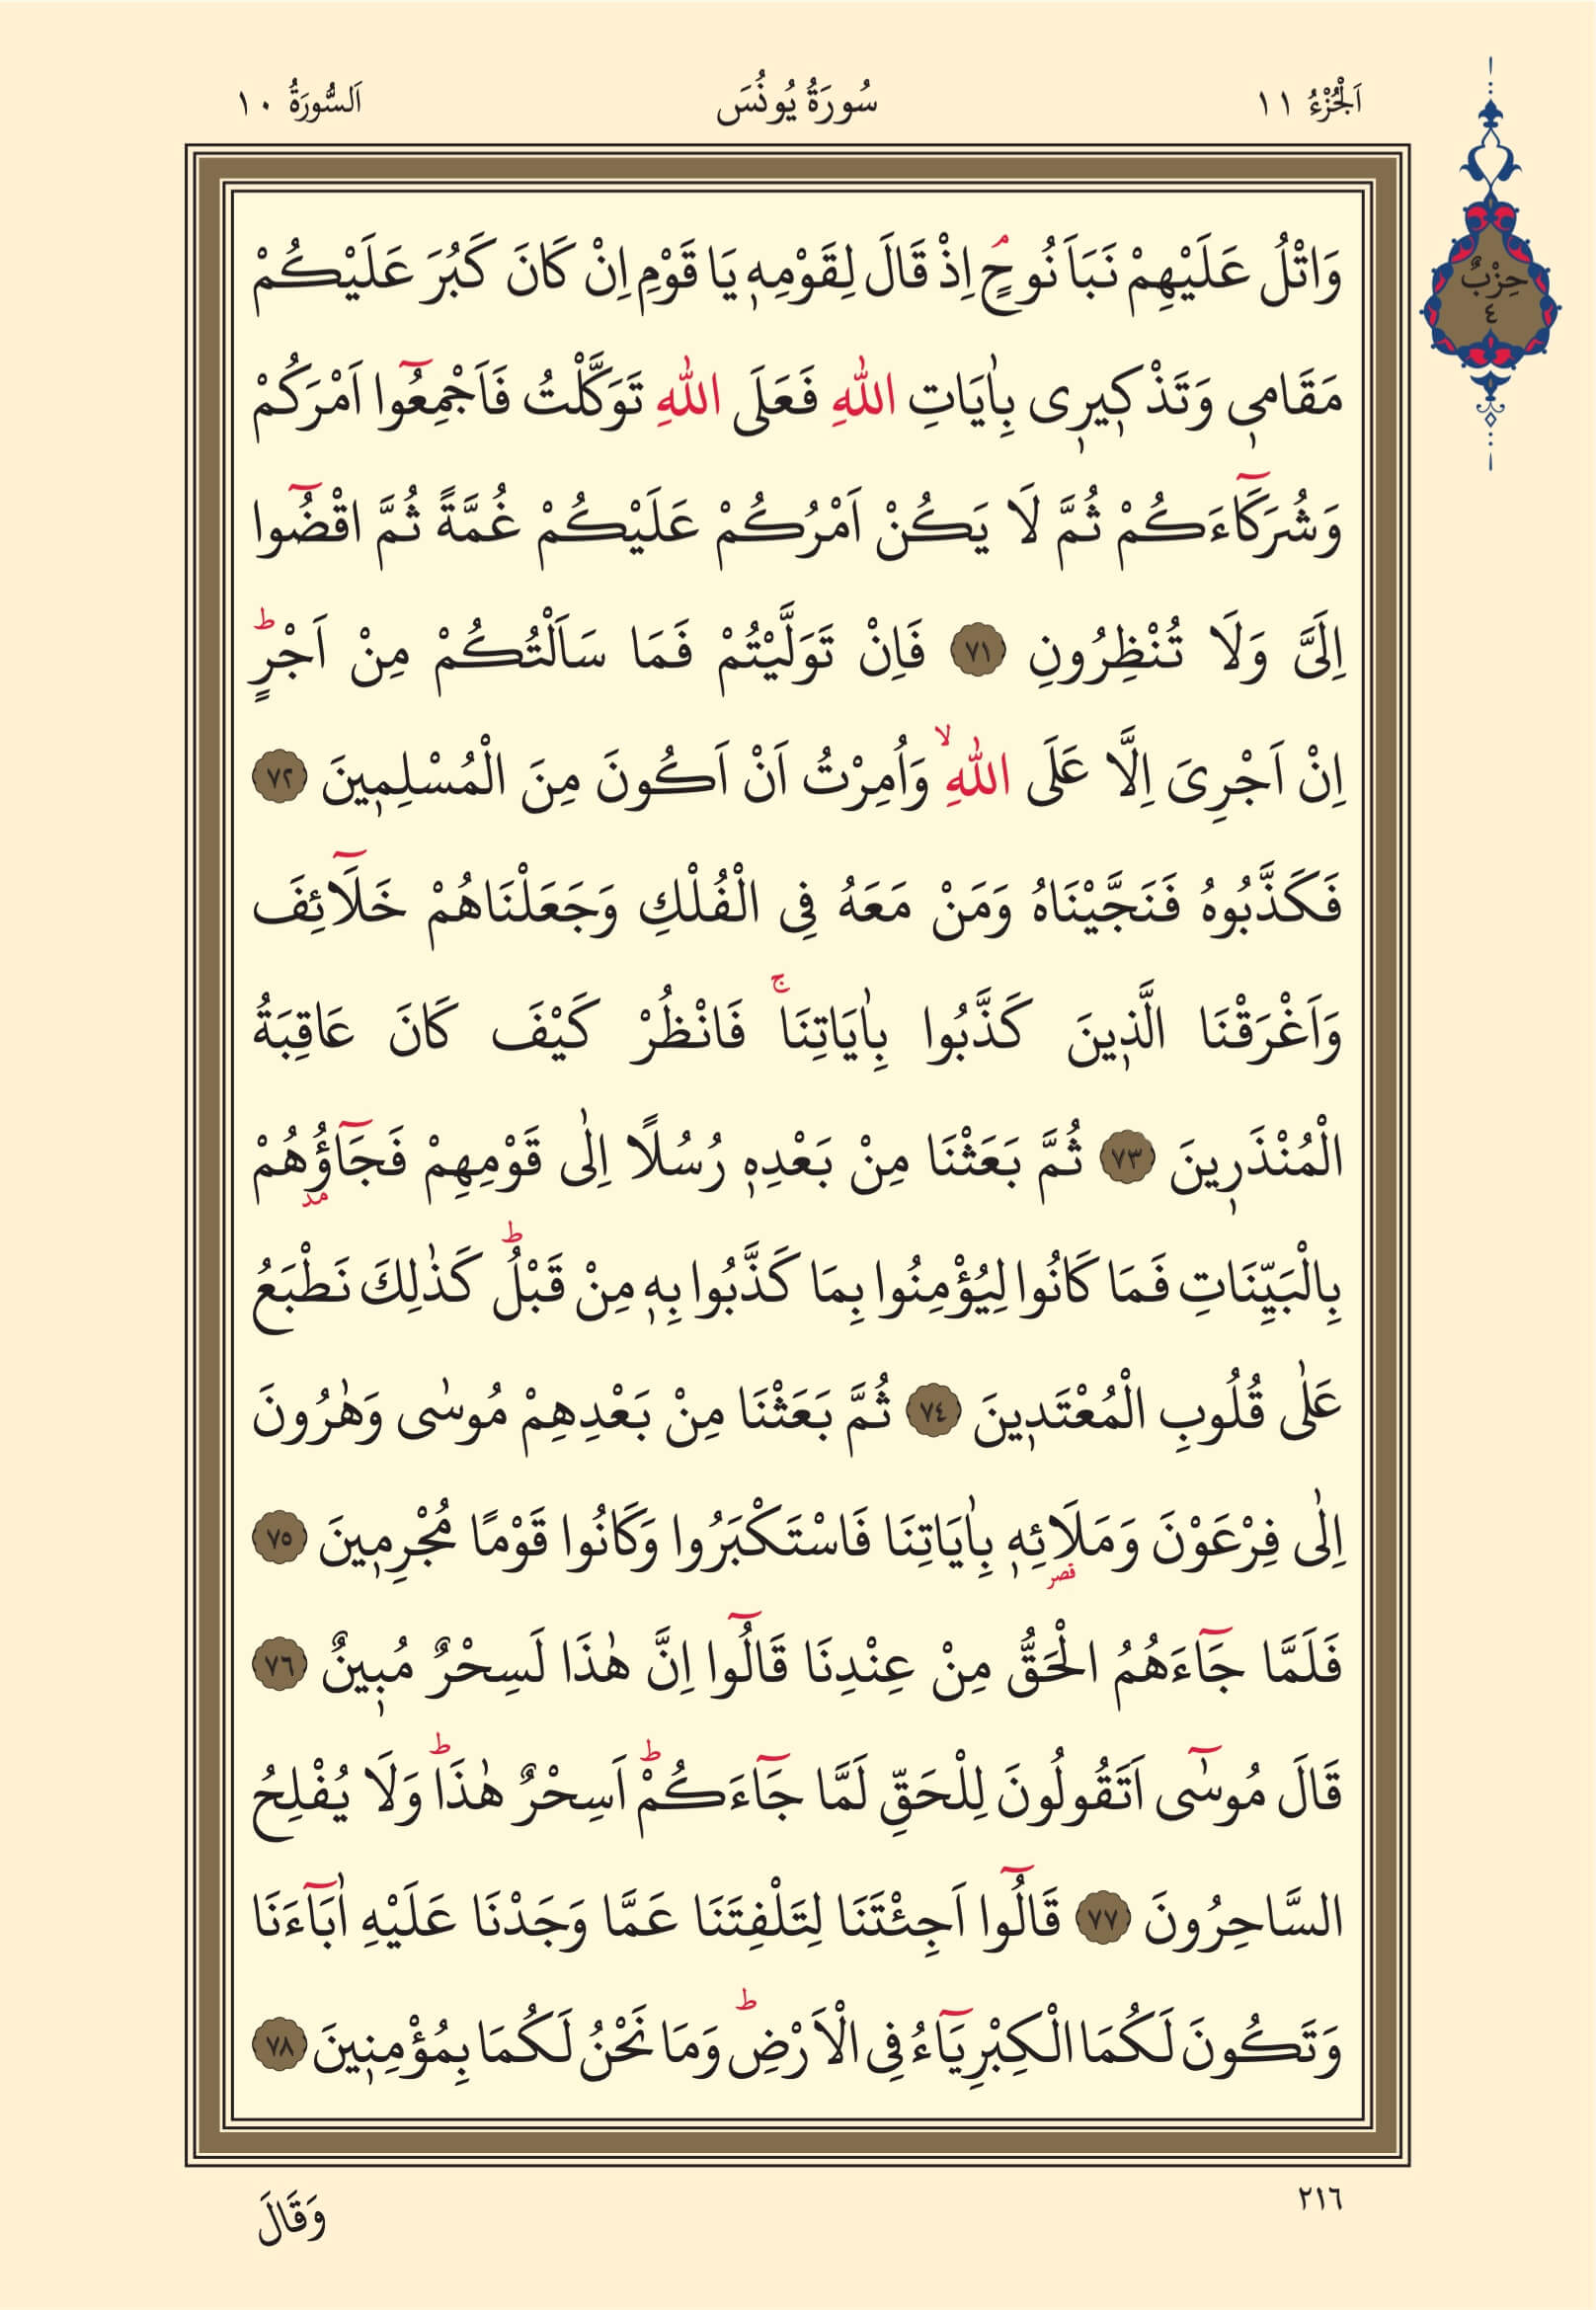 اَلْجُزْءُ ١١ سُورَةُ يُونُسَ اَلسُّورَةُ ١٠
حِزْبٌ
٤
وَاتْلُ عَلَيْهِمْ نَبَاَ نُوحٍۢ اِذْ قَالَ لِقَوْمِه۪ يَا قَوْمِ اِنْ كَانَ كَبُرَ عَلَيْكُمْ
مَقَام۪ي وَتَذْك۪ير۪ي بِاٰيَاتِ اللّٰهِ فَعَلَى اللّٰهِ تَوَكَّلْتُ فَاَجْمِعُٓوا اَمْرَكُمْ
وَشُرَكَٓاءَكُمْ ثُمَّ لَا يَكُنْ اَمْرُكُمْ عَلَيْكُمْ غُمَّةً ثُمَّ اقْضُٓوا
اِلَيَّ وَلَا تُنْظِرُونِ ٧١ فَاِنْ تَوَلَّيْتُمْ فَمَا سَاَلْتُكُمْ مِنْ اَجْرٍۜ
اِنْ اَجْرِيَ اِلَّا عَلَى اللّٰهِۙ وَاُمِرْتُ اَنْ اَكُونَ مِنَ الْمُسْلِم۪ينَ ٧٢
فَكَذَّبُوهُ فَنَجَّيْنَاهُ وَمَنْ مَعَهُ فِي الْفُلْكِ وَجَعَلْنَاهُمْ خَلَٓائِفَ
وَاَغْرَقْنَا الَّذ۪ينَ كَذَّبُوا بِاٰيَاتِنَاۚ فَانْظُرْ كَيْفَ كَانَ عَاقِبَةُ
الْمُنْذَر۪ينَ ٧٣ ثُمَّ بَعَثْنَا مِنْ بَعْدِه۪ رُسُلًا اِلٰى قَوْمِهِمْ فَجَٓاؤُ۫هُمْ
مد
بِالْبَيِّنَاتِ فَمَا كَانُوا لِيُؤْمِنُوا بِمَا كَذَّبُوا بِه۪ مِنْ قَبْلُۜ كَذٰلِكَ نَطْبَعُ
عَلٰى قُلُوبِ الْمُعْتَد۪ينَ ٧٤ ثُمَّ بَعَثْنَا مِنْ بَعْدِهِمْ مُوسٰى وَهٰرُونَ
اِلٰى فِرْعَوْنَ وَمَلَائِه۪ بِاٰيَاتِنَا فَاسْتَكْبَرُوا وَكَانُوا قَوْمًا مُجْرِم۪ينَ ٧٥
قصر
فَلَمَّا جَٓاءَهُمُ الْحَقُّ مِنْ عِنْدِنَا قَالُٓوا اِنَّ هٰذَا لَسِحْرٌ مُب۪ينٌ ٧٦
قَالَ مُوسٰٓى اَتَقُولُونَ لِلْحَقِّ لَمَّا جَٓاءَكُمْۜ اَسِحْرٌ هٰذَاۜ وَلَا يُفْلِحُ
السَّاحِرُونَ ٧٧ قَالُٓوا اَجِئْتَنَا لِتَلْفِتَنَا عَمَّا وَجَدْنَا عَلَيْهِ اٰبَٓاءَنَا
وَتَكُونَ لَكُمَا الْكِبْرِيَٓاءُ فِي الْاَرْضِۜ وَمَا نَحْنُ لَكُمَا بِمُؤْمِن۪ينَ ٧٨
٢١٦
وَقَالَ